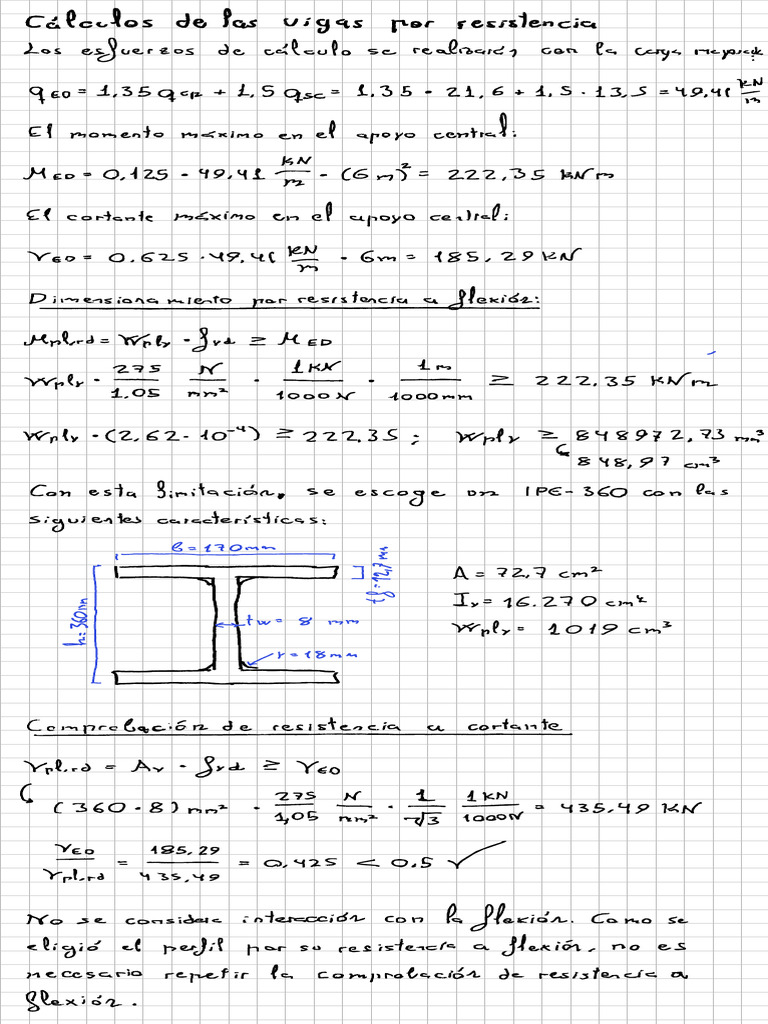 Cálculos de las vigas por resistencia
Los esfuerzos de cálculo se realizarán con la carga mayorada:
qED = 1,35 qcp + 1,5 qsc = 1,35 · 21,6 + 1,5 · 13,5 = 49,41 kN/m
El momento máximo en el apoyo central:
MED = 0,125 · 49,41 kN/m · (6m)² = 222,35 kNm
El cortante máximo en el apoyo central:
VED = 0.625 · 49,41 kN/m · 6m = 185,29 kN
Dimensionamiento por resistencia a flexión:
Mpl,rd = Wply · fyd ≥ MED
Wply · 275/1,05 N/mm² · 1KN/1000N · 1m/1000mm ≥ 222,35 KNm
Wply · (2,62 · 10⁻⁴) ≥ 222,35 ; Wply ≥ 848972,73 mm³
848,97 cm³
Con esta limitación, se escoge un IPE-360 con las
siguientes características:
b = 170mm
tf = 12,7 mm
h = 360mm
tw = 8 mm
r = 18mm
A = 72,7 cm²
Iy = 16.270 cm⁴
Wply = 1019 cm³
Comprobación de resistencia a cortante
Vpl,rd = Av · fyd ≥ VED
(360 · 8) mm² · 275/1,05 N/mm² · 1/√3 1KN/1000N = 435,49 KN
VED/Vpl,rd = 185,29/435,49 = 0,425 < 0.5 ✓
No se considera interacción con la flexión. Como se
eligió el perfil por su resistencia a flexión, no es
necesario repetir la comprobación de resistencia a
flexión.